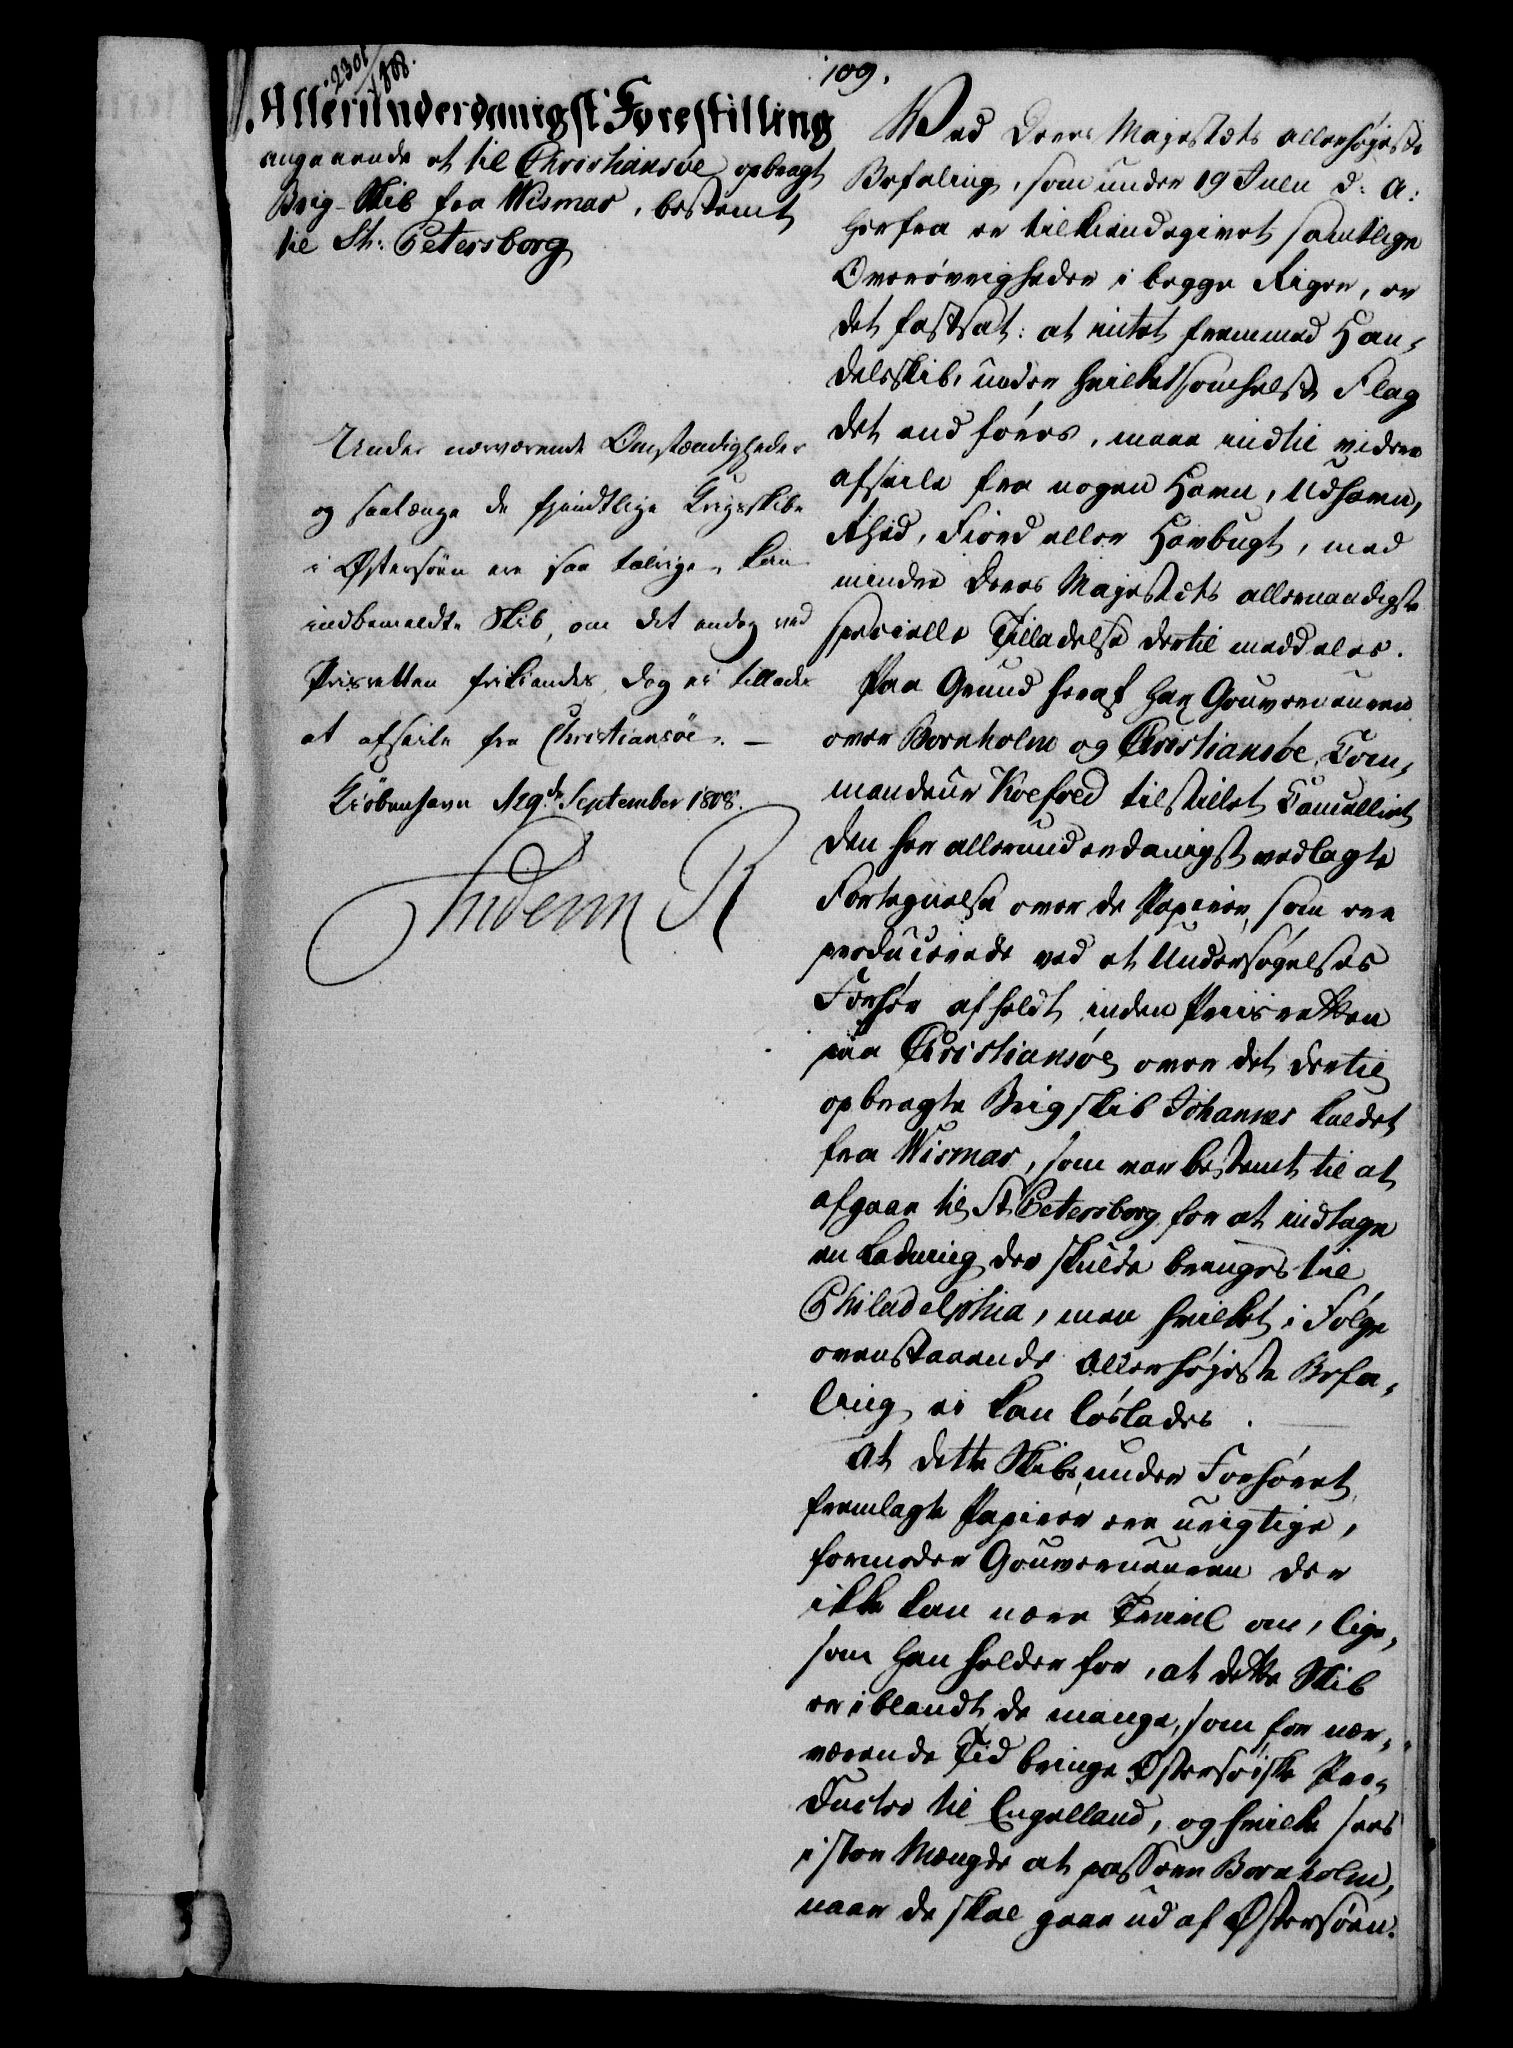 2301/1808.
109.
Allerunderdanigst Forestilling
angaaende et til Christiansøe opbragt
Brig-Skib fra Wismar, bestemt
til St: Petersborg
Under nærværende Omstændigheder
og saalænge de fjendtlige Krigsskibe
i Østersøen ere saa talrige, kan
indbemeldte Skib, om det endog ved
Prisretten frikiendes, dog ei tillades
at afseile fra Christiansøe. —
Kiöbenhavn d. 29de September 1808.
Frideric R
Ved Deres Majestæts allerhøieste
Befaling, som under 19 Julii d: A:
herfra er tilkiendegivet samtlige
Overøvrigheder i begge Riger, er
det fastsat: at intet fremmed Han-
delsskib, under hvilketsomhelst Flag
det end føres, maae indtil videre
afseile fra nogen Havn, Udhavn,
Rhed, Fiord eller Havbugt, med
mindre Deres Majestæts allernaadigste
specielle Tilladelse dertil meddeles.
Paa Grund heraf har Gouverneuren
over Bornholm og Christiansøe, Com-
mandeur Koefoed tilstillet Cancelliet
den her allerunderdanigst vedlagte
Fortegnelse over de Papirer, som ere
producerede ved et Undersøgelses
Forhør afholdt inden Priisretten
paa Christiansøe over det dertil
opbragte Brigskib Johannes kaldet
fra Wismar, som var bestemt til at
afgaae til St Petersborg for at indtage
en Ladning der skulde bringes til
Philadelphia, men hvilket i Følge
ovenstaaende allerhøjeste Befa-
ling ei kan løslades.
At dette Skibs under Forhøret
fremlagte Papirer ere urigtige,
formoder Gouverneuren der
ikke kan være Tvivl om, lige-
som han holder for, at dette Skib
er iblandt de mange, som for nær-
værende Tid bringe Østersøiske Pro-
ducter til Engelland, og hvilke sees
i stor Mængde at passere Bornholm,
naar de skal gaae ud af Østersøen.